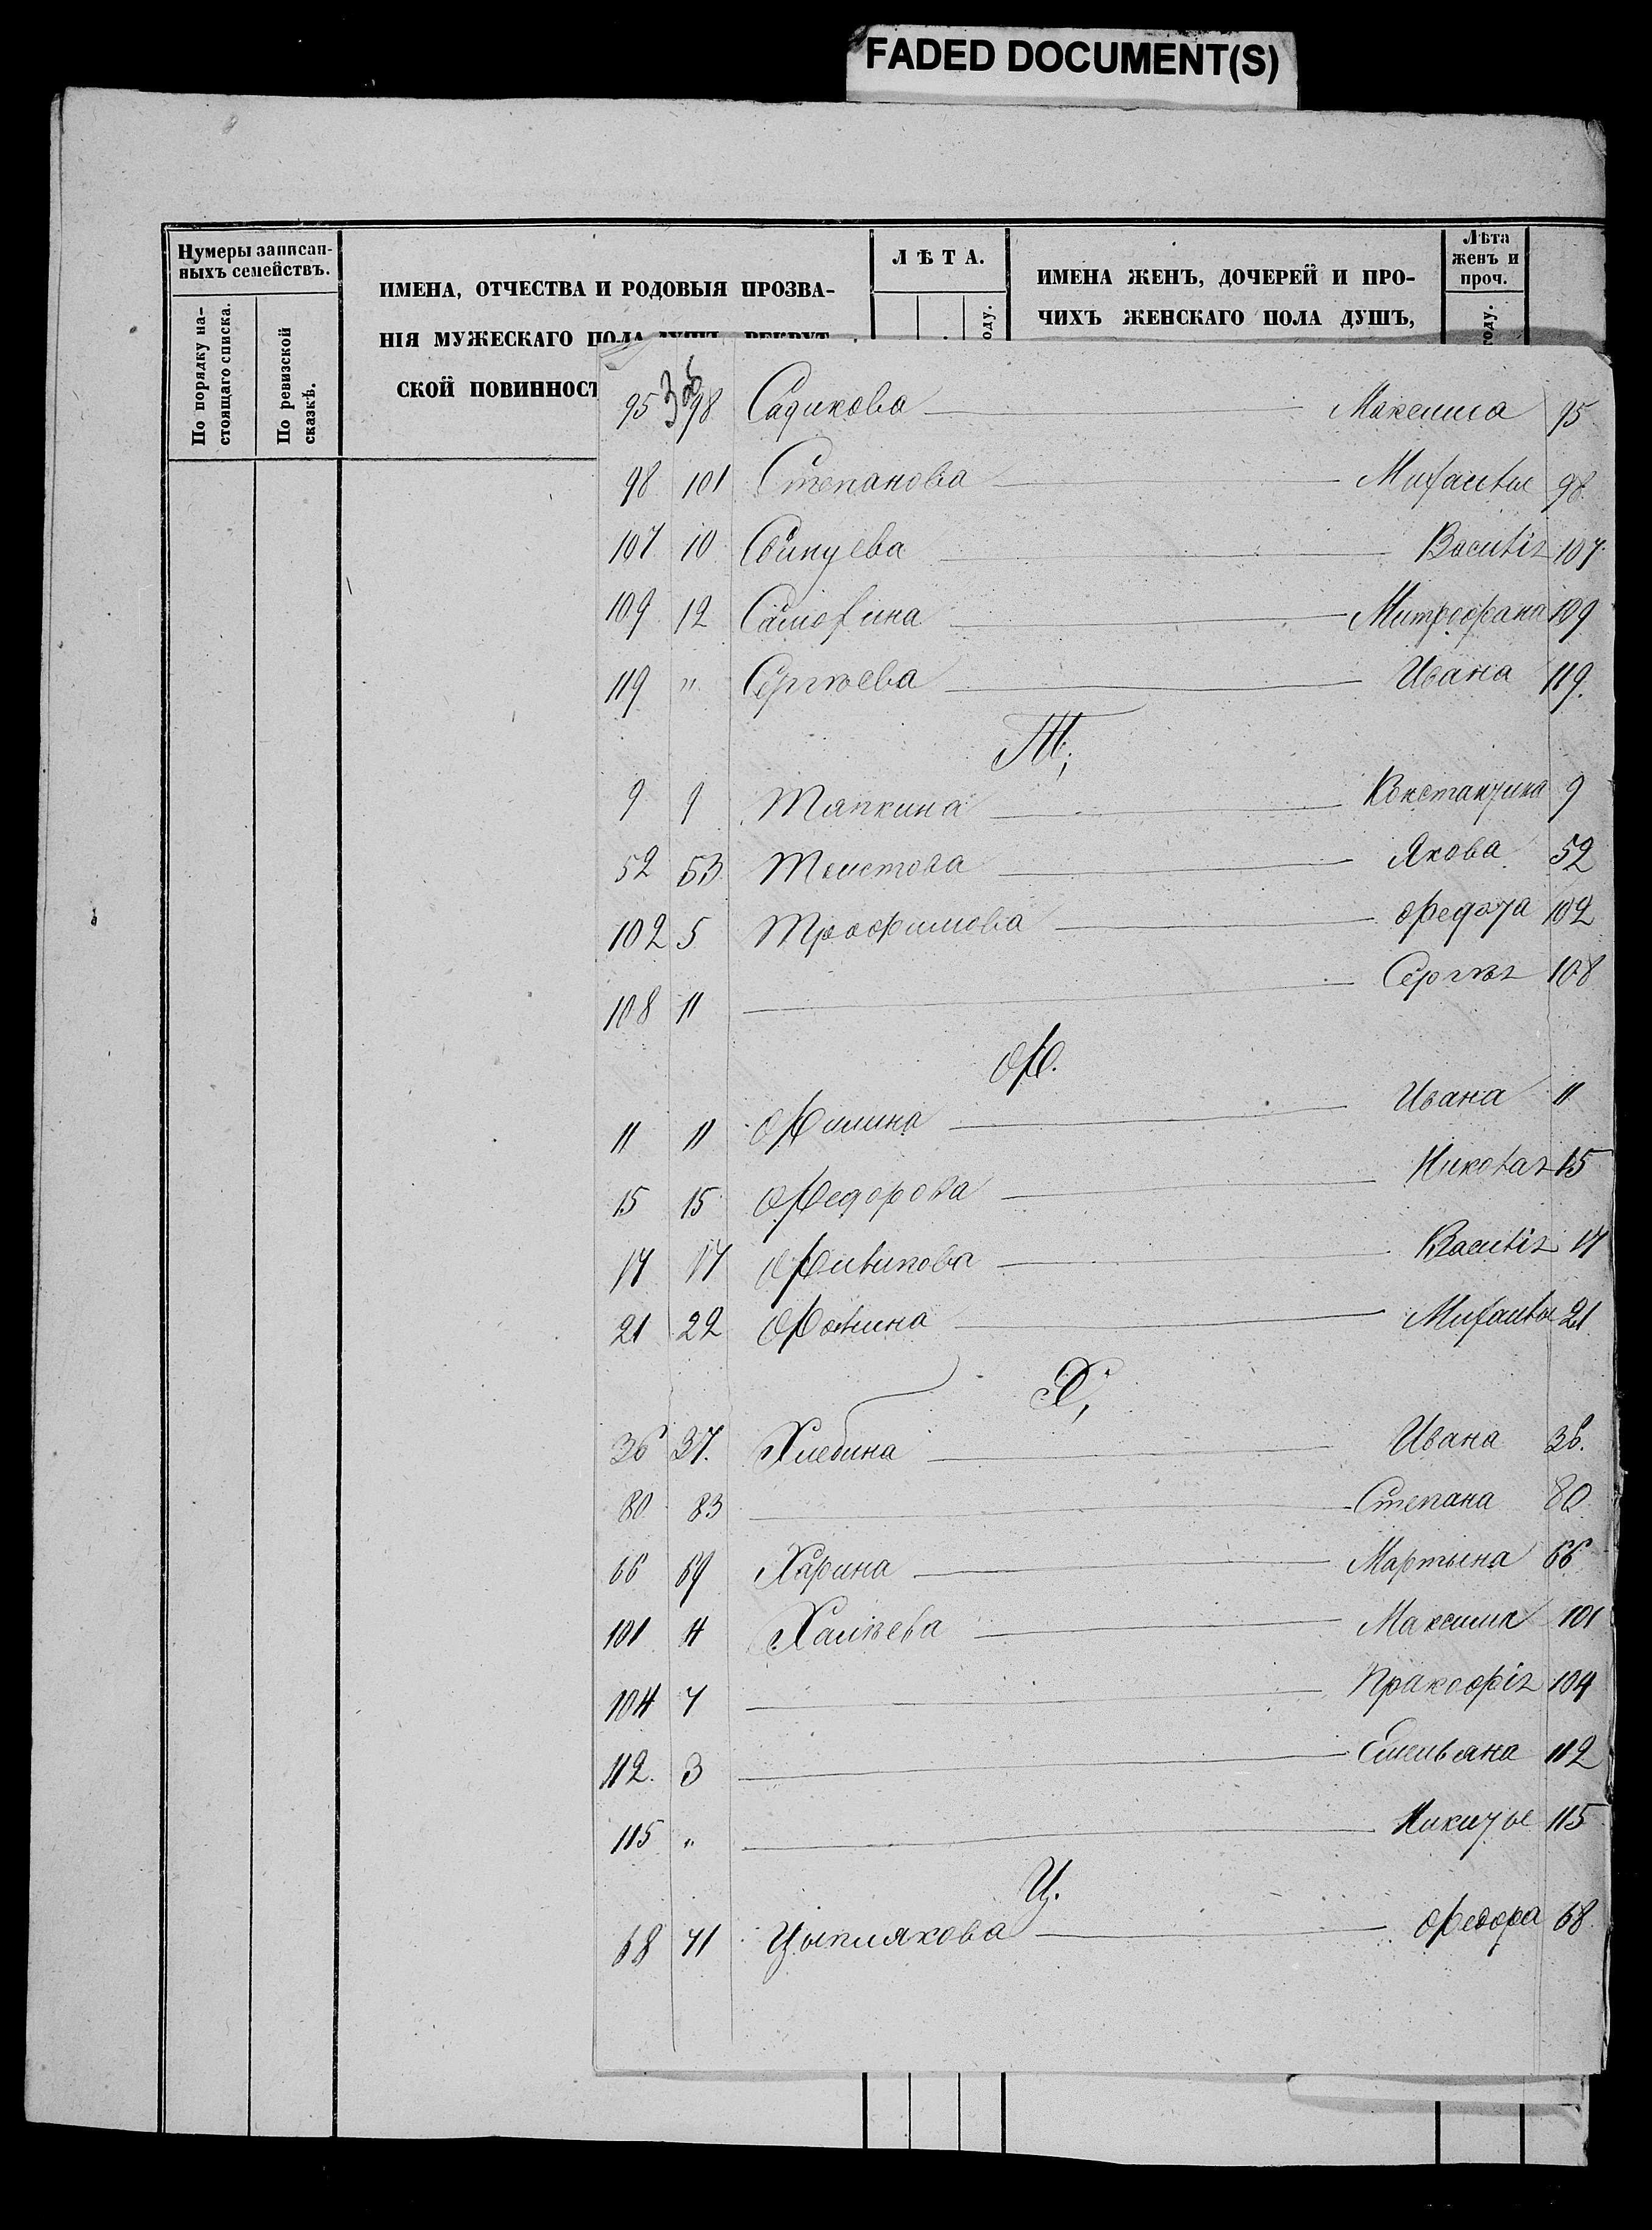 FADED DOCUMENT(S)
Нумеры записан-
ныхъ семействъ.
По порядку на-
стоящаго списка.
По ревизской
сказкѣ.
ИМЕНА, ОТЧЕСТВА И РОДОВЫЯ ПРОЗВА-
НІЯ МУЖЕСКАГО ПОЛА ДУШЪ, РЕКРУТ
СКОЙ ПОВИННОСТ
ЛѢТА.
оду.
ИМЕНА ЖЕНЪ, ДОЧЕРЕЙ И ПРО-
ЧИХЪ ЖЕНСКАГО ПОЛА ДУШЪ,
Лѣта
женъ и
проч.
году.
95 98 Садикова Максима 95
98 101 Степанова Михайлы 98.
107 10 Свинцева Василія 107.
109 12 Самохина Митрофана 109
119 " Сергѣева Ивана 119.
Т,
9 9 Тяпкина Констанtина 9
52 53 Толстова Якова 52
102 5 Трофимова Федота 102
108 11 Сергѣя 108
Ф.
11 11 Фомина Ивана 11
15 15 Федорова Николая 15
17 17 Филипова Василія 17
21 22 Фотина Михайлы 21
Х,
36 37. Хлебина Ивана 36.
80 83 Степана 80
66 69 Харина Мартына 66
101 4 Халѣева Максима 101
104 7 Пракофія 104
112. 3 Емельяна 112
115 " Никиты 115
Ц.
68 71 Цыплякова Федора 68